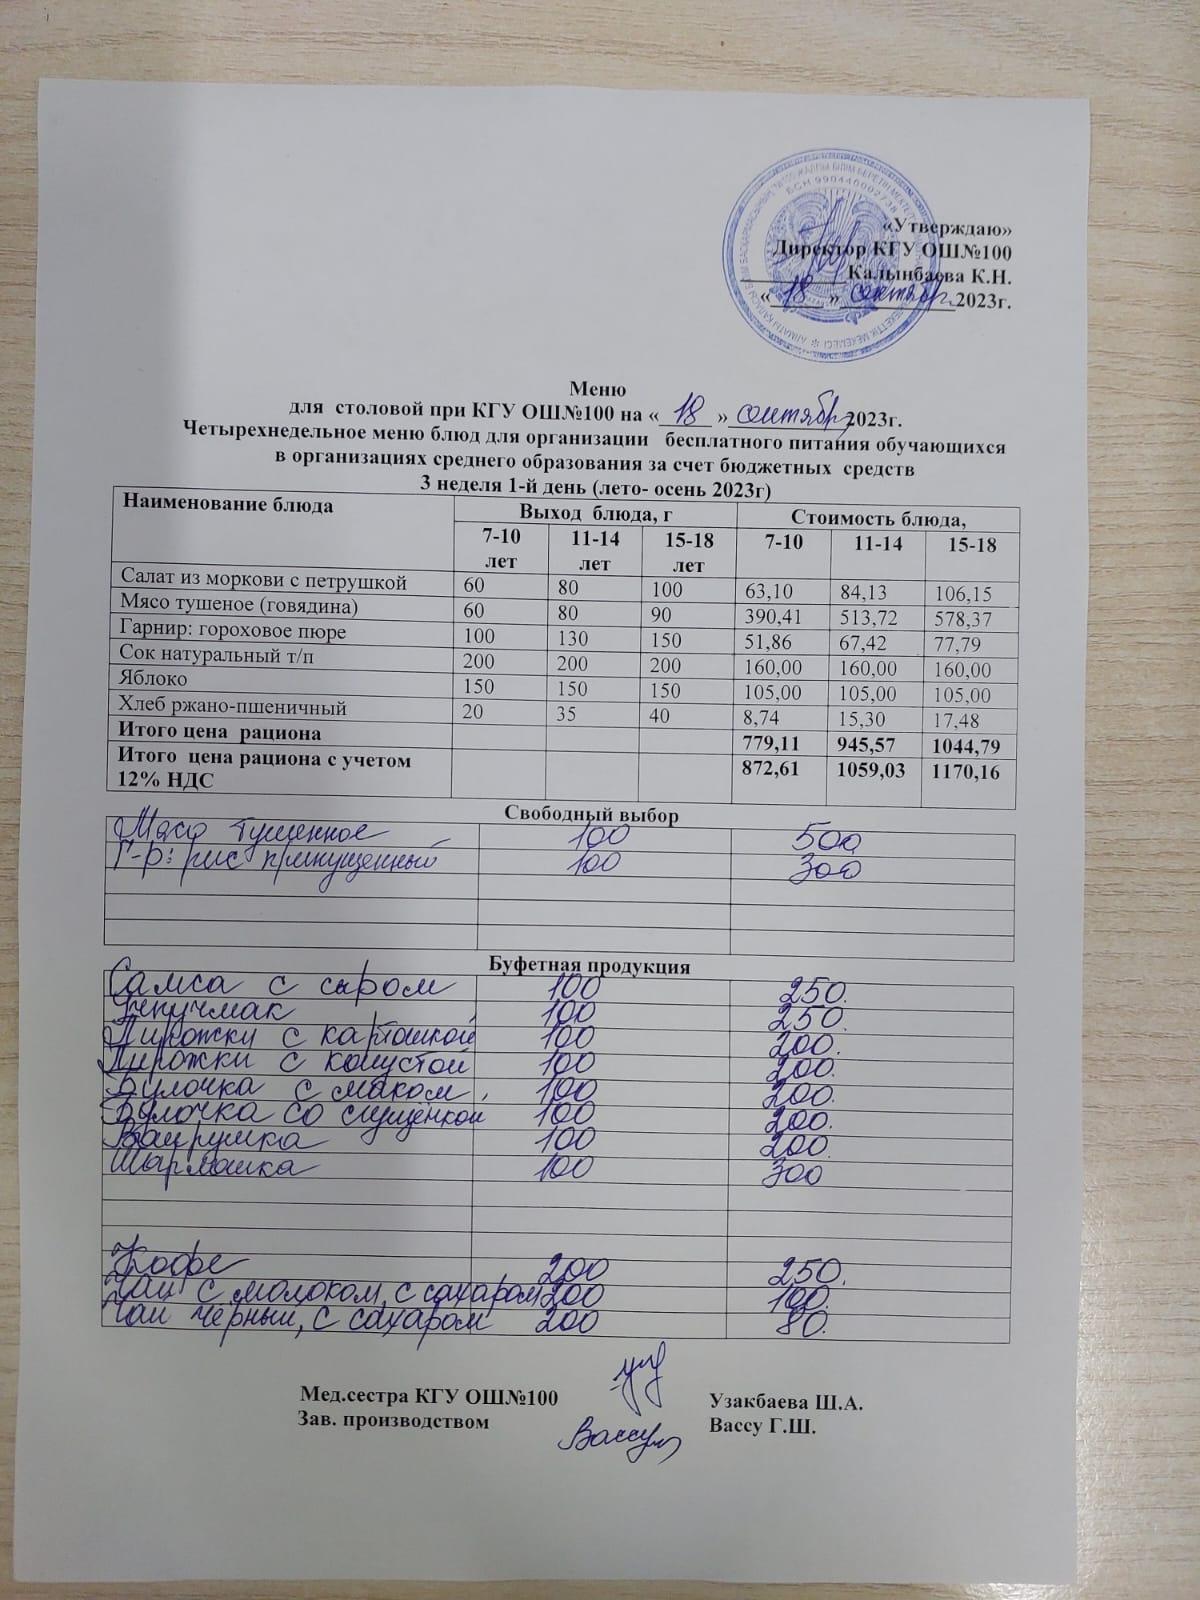 БСН 990440002738
«Утверждаю»
Директор КГУ ОШ№100
Калынбаева К.Н.
« 18 » сентябрь 2023г.
Меню
для столовой при КГУ ОШ№100 на « 18 » сентябрь 2023г.
Четырехнедельное меню блюд для организации бесплатного питания обучающихся
в организациях среднего образования за счет бюджетных средств
3 неделя 1-й день (лето- осень 2023г)
Наименование блюда Выход блюда, г Стоимость блюда,
7-10 лет 11-14 лет 15-18 лет 7-10 11-14 15-18
Салат из моркови с петрушкой 60 80 100 63,10 84,13 106,15
Мясо тушеное (говядина) 60 80 90 390,41 513,72 578,37
Гарнир: гороховое пюре 100 130 150 51,86 67,42 77,79
Сок натуральный т/п 200 200 200 160,00 160,00 160,00
Яблоко 150 150 150 105,00 105,00 105,00
Хлеб ржано-пшеничный 20 35 40 8,74 15,30 17,48
Итого цена рациона 779,11 945,57 1044,79
Итого цена рациона с учетом 872,61 1059,03 1170,16
12% НДС
Свободный выбор
Мясо тушенное 100 500
Г-р: рис припущенный 100 300
Буфетная продукция
Самса с сыром 100 250.
Учпучмак 100 250.
Пирожки с картошкой 100 200.
Пирожки с капустой 100 200.
Булочка с маком 100 200.
Булочка со сгущенкой 100 200.
Ватрушка 100 200.
Шармашка 100 300
Кофе 200 250.
Чай с молоком, с сахаром 200 100.
Чай черный, с сахаром 200 80.
Мед.сестра КГУ ОШ№100 Узакбаева Ш.А.
Зав. производством Вассу Г.Ш.